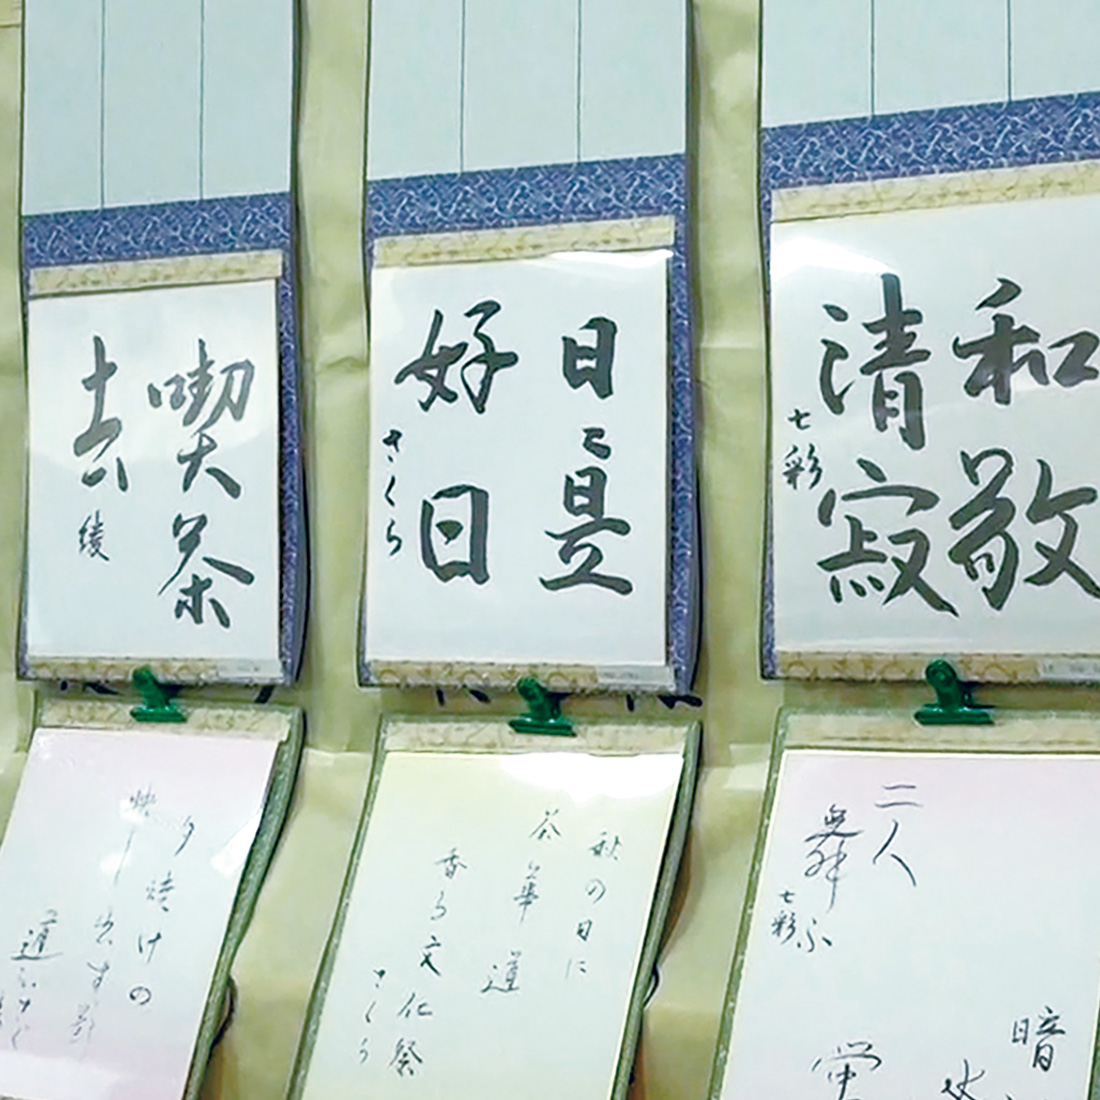 和敬
清寂
七彩
日々是
好日
さくら
喫茶
去
綾
暗
二人
舞ふ
七彩
秋の日に
茶華道
香る文化祭
さくら
夕焼けの